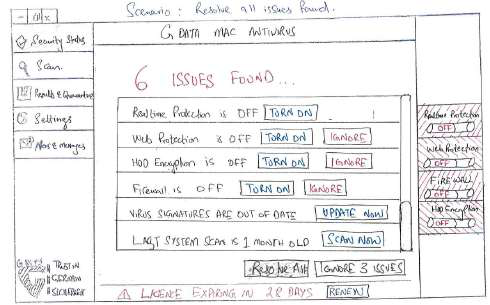 Scenario: Resolve all issues found.
G DATA MAC ANTIVIRUS
Security Status
Scan
Results & Quarantine
Settings
6 ISSUES FOUND...
Realtime Protection is OFF TURN ON
Web Protection is OFF TURN ON IGNORE
HDD Encryption is OFF TURN ON IGNORE
Firewall is OFF TURN ON IGNORE
VIRUS SIGNATURES ARE OUT OF DATE UPDATE NOW
LAST SYSTEM SCAN IS 1 MONTH OLD SCAN NOW
Resolve All IGNORE 3 ISSUES
LICENCE EXPIRING IN 28 DAYS RENEW
Realtime Protection
OFF
Web Protection
OFF
FIREWALL
OFF
HDD Encryption
OFF
TRUST IN
GERMAN